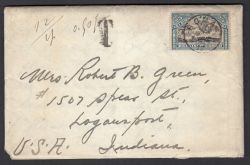 1/2
T
Mrs. Robert B. Green,
# 1507 Spear St,
Logansport,
U.S.A. Indiana.